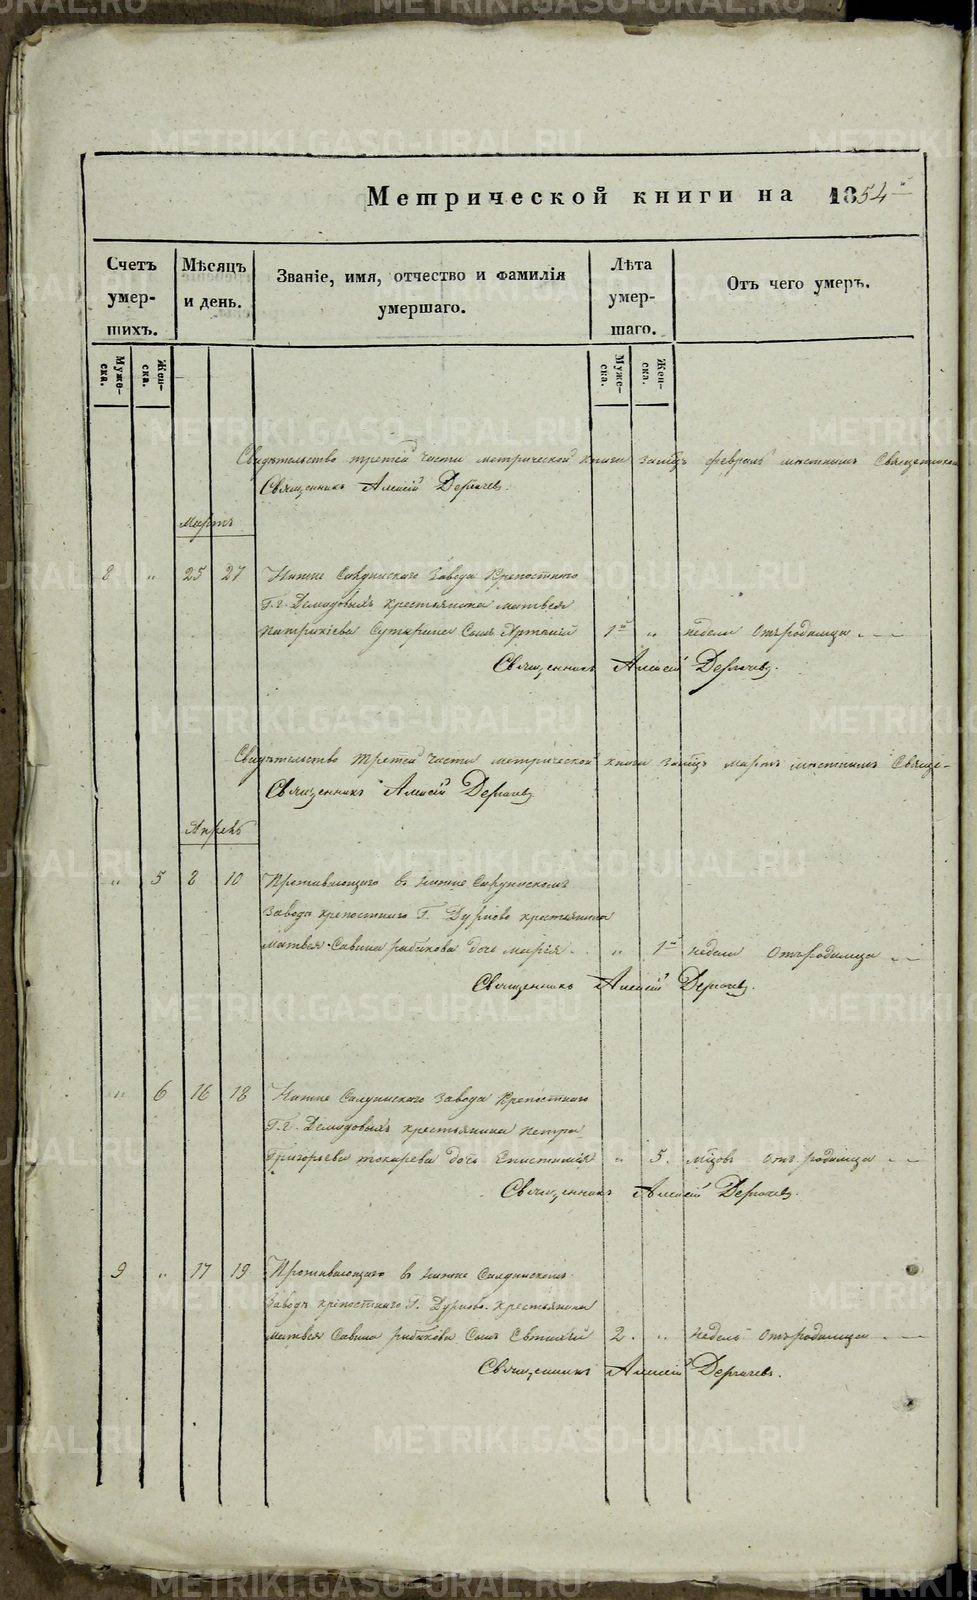 Метрической книги на 1854й
Счетъ умер- шихъ.
Мѣсяцъ и день.
Званіе, имя, отчество и фамилія умершаго.
Лѣта умер- шаго.
Отъ чего умеръ.
Муже- ска.
Жен- ска.
Муже- ска.
Жен- ска.
Свидѣтельство третей части метрической книги за мцъ февраль мѣстнымъ Священником
Священникъ Алексій Дергачев.
Мартъ
8 „ 25 27 Нижне Салдинскаго завода Крепостнаго
Г. г. Демидовыхъ крестьянина матвея
Патрикіева Сутырина Сынъ Артемій 1й „ недели Отъ родимца
Священникъ Алексій Дергачевъ.
Свидѣтельство третей части метрической книги за мцъ мартъ мѣстнымъ Священ-
Священникъ Алексій Дергачев
Апрель
„ 5 8 10 Проживающаго в Нижне Салдинскомъ
заводе крепостнаго Г. Дурново крестьянина
Матвея Савина рыбакова дочь мария „ 1й недели Отъ родимца
Священникъ Алексій Дергачев.
„ 6 16 18 Нижне Салдинскаго завода Крепостнаго
Г. г. Демидовыхъ крестьянина петра
Григорьева токарева дочь „ 5. мцовъ отъ родимца
Священникъ Алексій Дергачев.
9 „ 17 19 Проживающаго в Нижне Салдинскомъ
заводе крепостнаго Г. Дурново. крестьянина
матвея Савина рыбакова Сынъ Евтихій 2. „ недель отъ родимца
Священникъ Алексій Дергачевъ.
METRIKI.GASO-URAL.RU